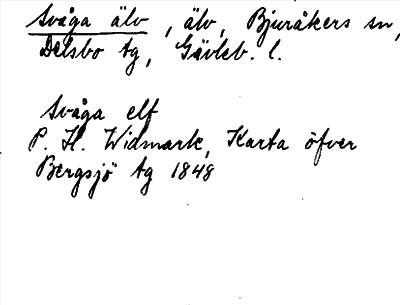 Svåga älv, älv, Bjuråkers sn,
Delsbo tg, Gävleb. l.
Svåga elf
P. H. Widmark, Karta öfver
Bergsjö tg 1848